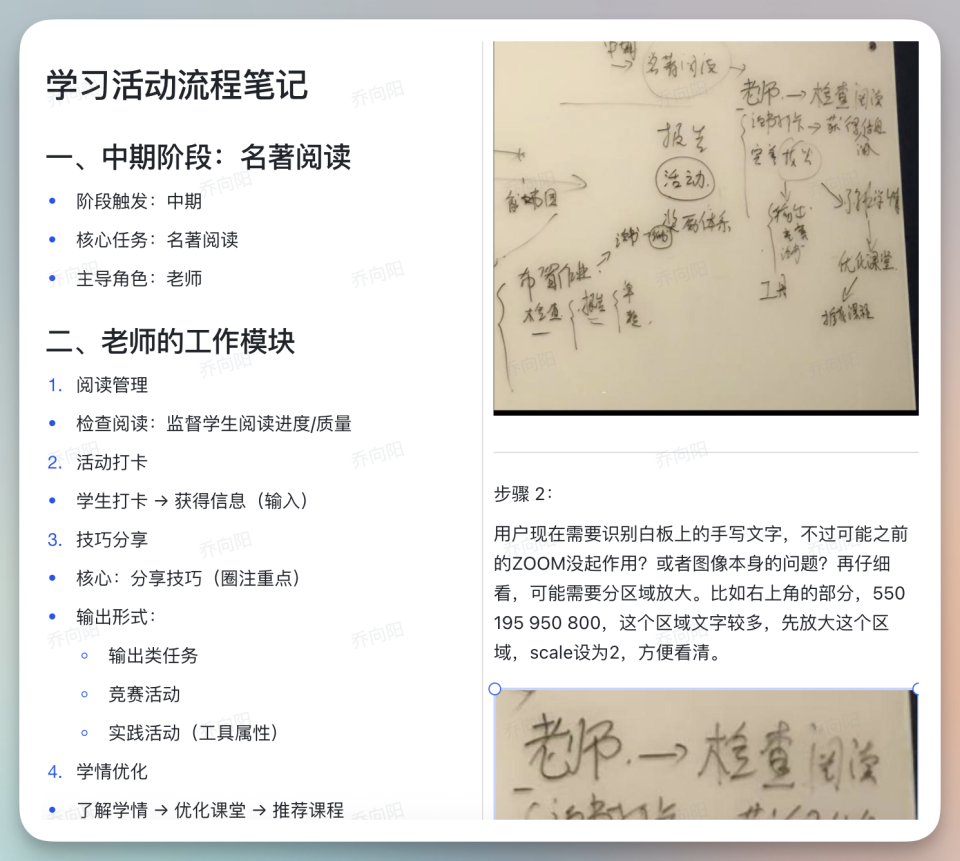 学习活动流程笔记
一、中期阶段：名著阅读
阶段触发：中期
核心任务：名著阅读
主导角色：老师
二、老师的工作模块
1. 阅读管理
检查阅读：监督学生阅读进度/质量
2. 活动打卡
学生打卡 → 获得信息（输入）
3. 技巧分享
核心：分享技巧（圈注重点）
输出形式：
输出类任务
竞赛活动
实践活动（工具属性）
4. 学情优化
了解学情 → 优化课堂 → 推荐课程
中期
→ 名著阅读 →
老师 → 检查阅读
报告
活动
奖励体系
布置作业
检查
报告
单
了解学情
优化课堂
工具
推荐课程
步骤 2：
用户现在需要识别白板上的手写文字，不过可能之前
的ZOOM没起作用？或者图像本身的问题？再仔细
看，可能需要分区域放大。比如右上角的部分，550
195 950 800，这个区域文字较多，先放大这个区
域，scale设为2，方便看清。
老师 → 检查阅读
乔向阳